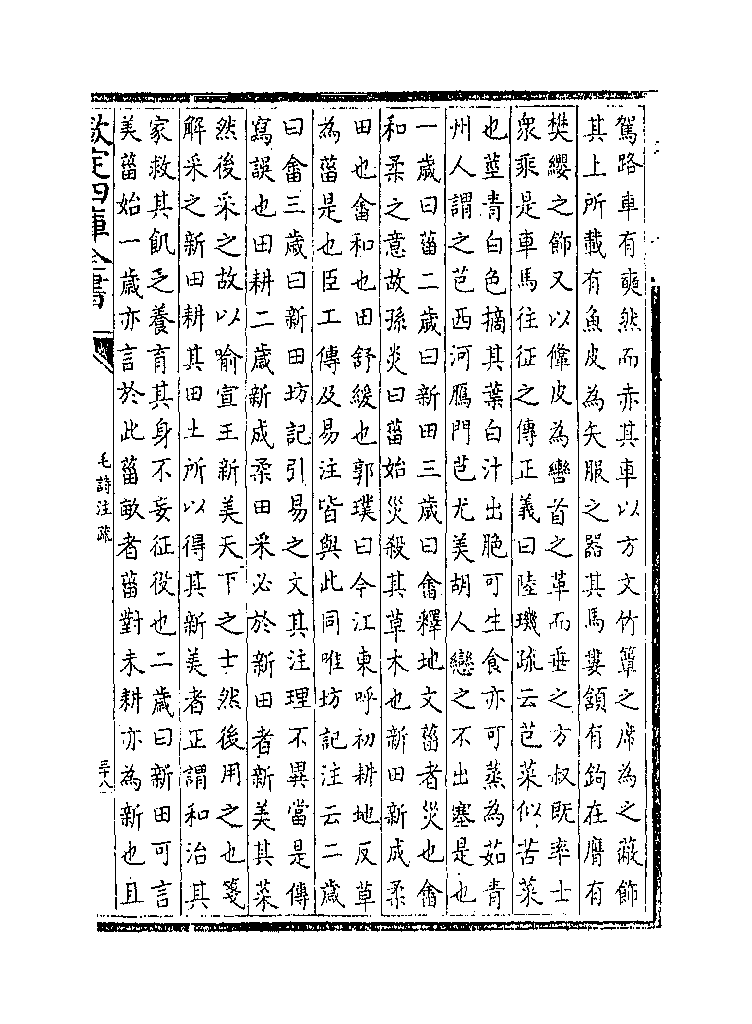 駕路車有奭然而赤其車以方文竹簟之席為之蔽飾
其上所載有魚皮為矢服之器其馬婁頷有鉤在膺有
樊纓之飾又以鞗皮為轡首之革而垂之方叔既率士
衆乘是車馬往征之傳正義曰陸璣疏云芑菜似苦菜
也莖青白色摘其葉白汁出脆可生食亦可蒸為茹青
州人謂之芑西河鴈門芑尤美胡人戀之不出塞是也
一歲曰菑二歲曰新田三歲曰畬釋地文菑者災也畬
和柔之意故孫炎曰菑始災殺其草木也新田新成柔
田也畬和也田舒緩也郭璞曰今江東呼初耕地反草
為菑是也臣工傳及易注皆與此同唯坊記注云二歲
曰畬三歲曰新田坊記引易之文其注理不異當是傳
寫誤也田耕二歲新成柔田采必於新田者新美其菜
然後采之故以喻宣王新美天下之士然後用之也箋
解采之新田耕其田土所以得其新美者正謂和治其
家救其飢乏養育其身不妄征役也二歲曰新田可言
美菑始一歲亦言於此菑畝者菑對未耕亦為新也且
欽定四庫全書
毛詩注疏
三十八